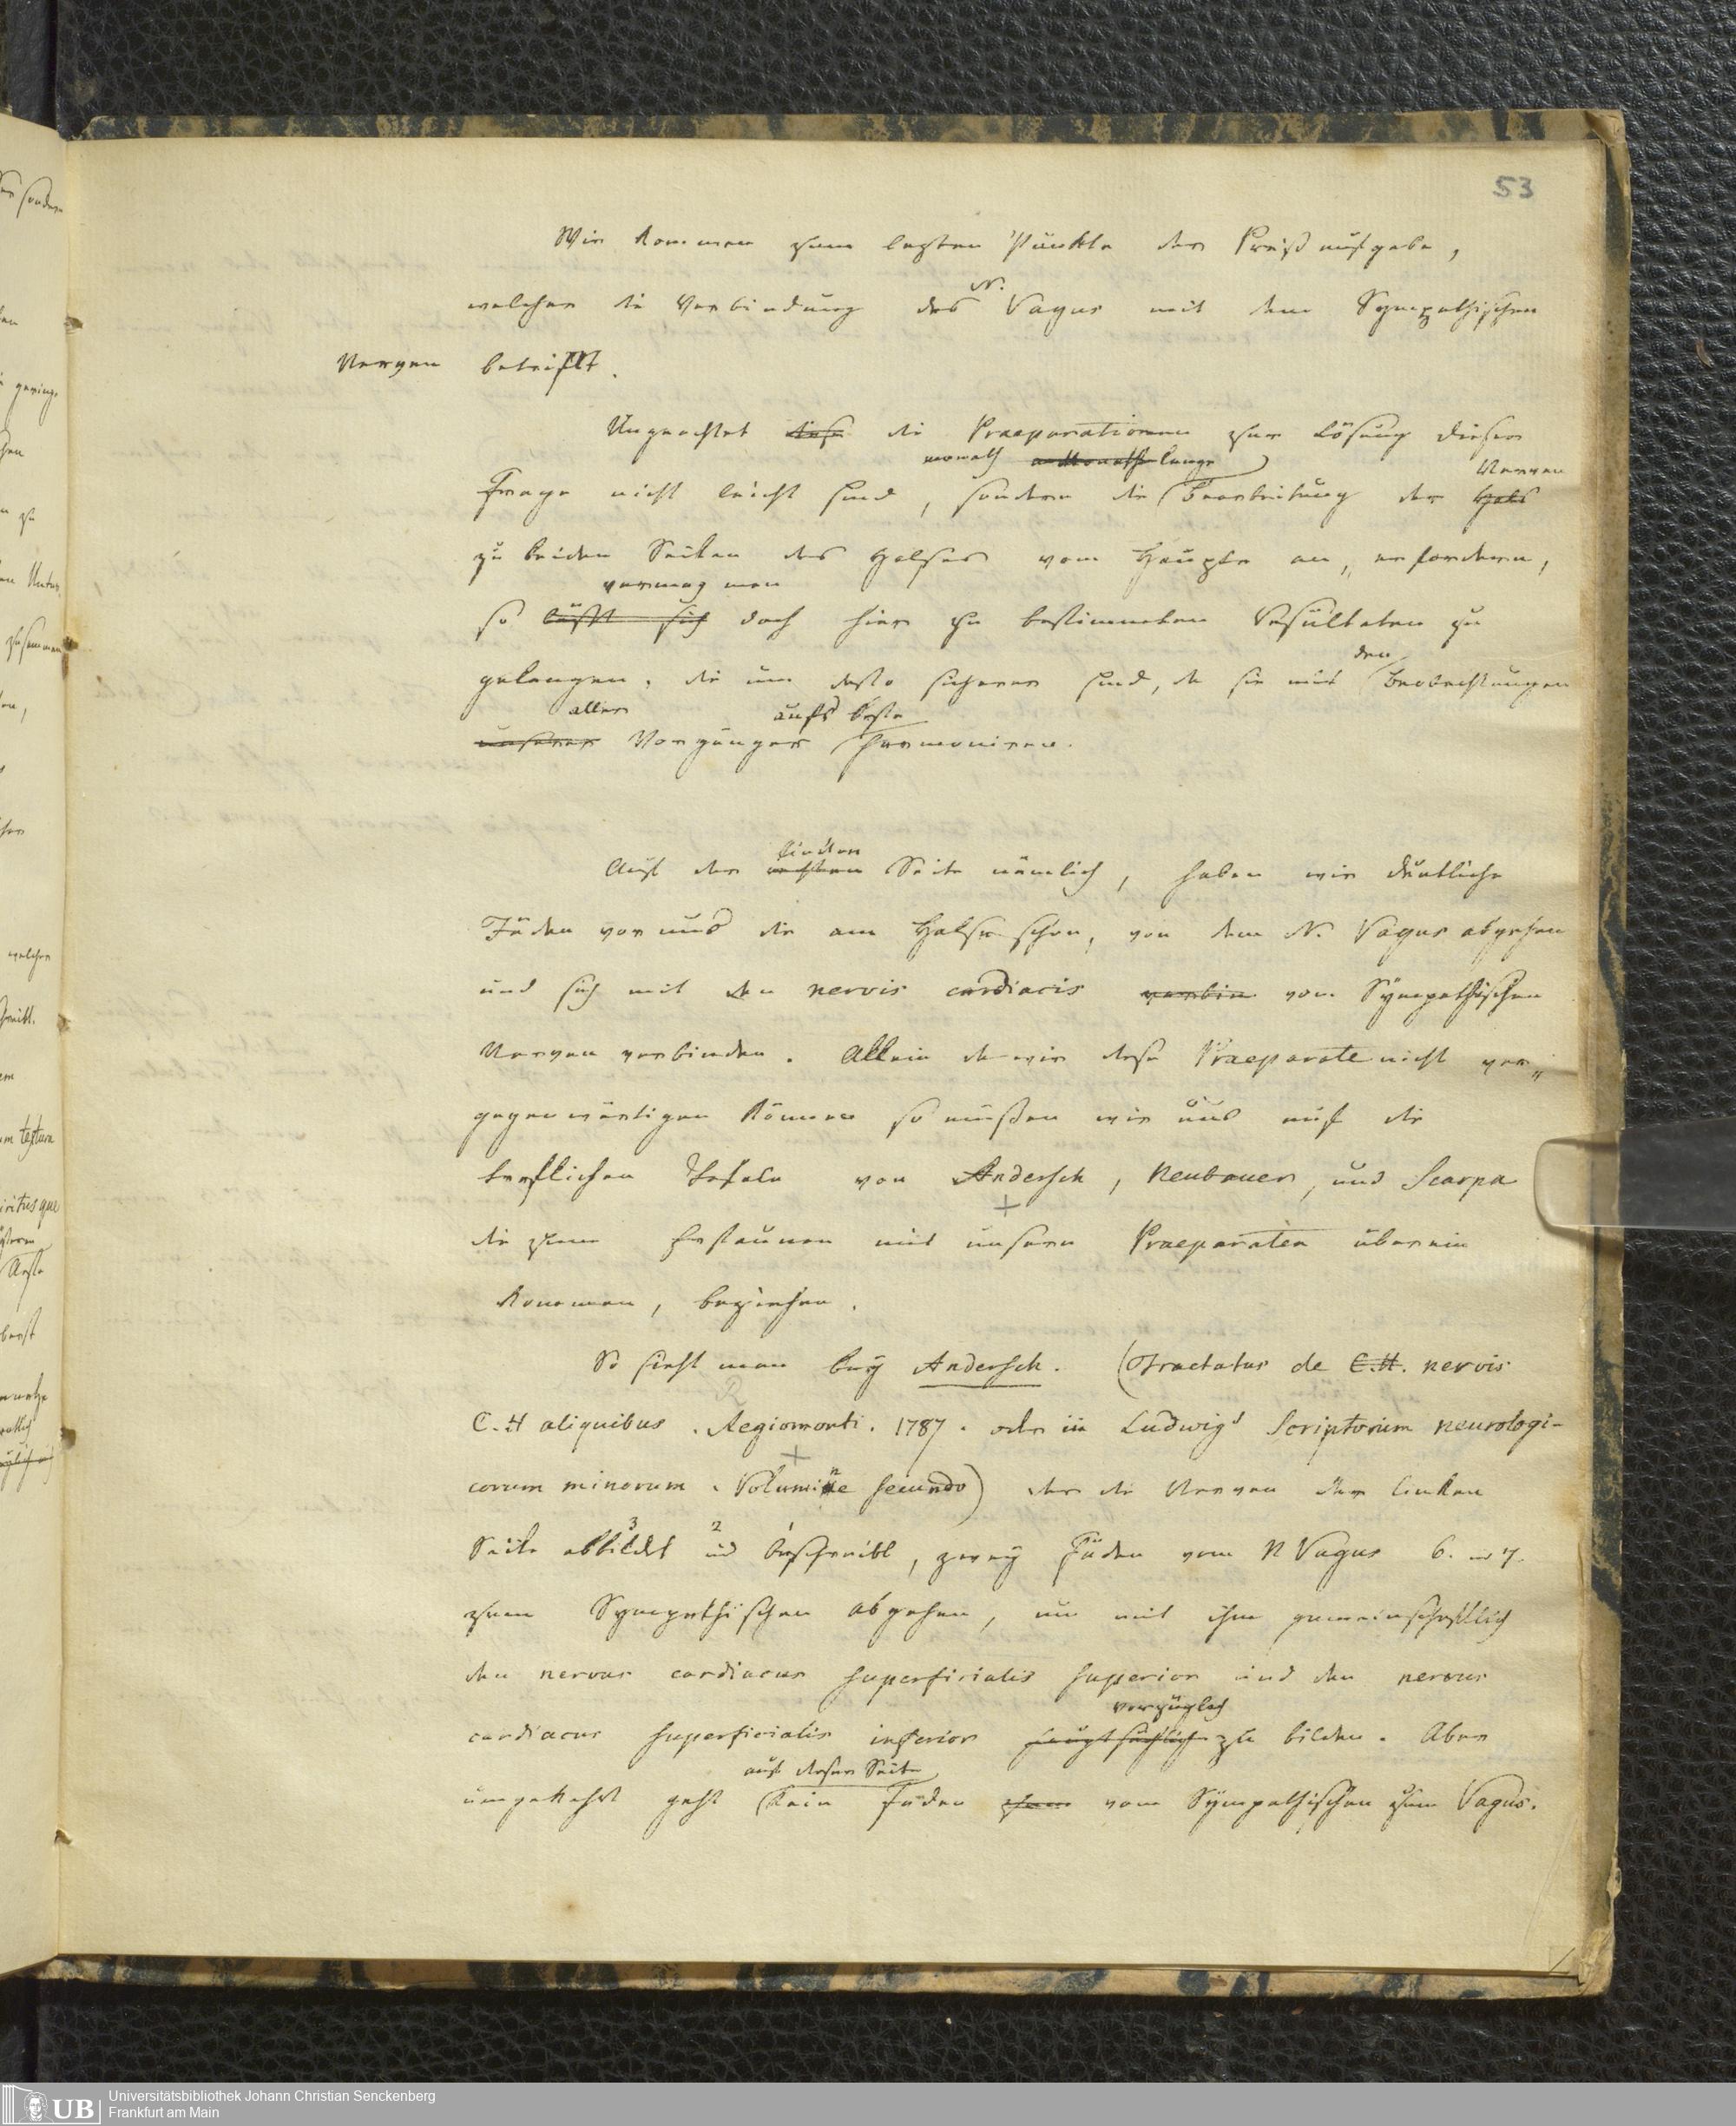 53
Wir kommen zum lezten Punkte der Preißaufgabe,
welcher die Verbindung des N. Vagus mit dem Sympathischen
Nerven betrifft.
Ungeachtet diese die Praeparationen zur Lösung dieser
monath lange Nerven
Frage nicht leicht sind, sondern die Bearbeitung der Hals
zu beiden Seiten des Halses vom Haupte an, erfordern,
vermag man
so läßt sich doch hier zu bestimmten Resultaten zu
gelangen, die um desto sicherer sind, da sie mit den Beobachtungen
aller aufs beste
unserer Vorgänger harmoniren.
linken
Auf der rechten Seite nämlich, haben wir deutliche
Fäden vor uns die am Halse schon, von dem N. Vagus abgehen
und sich mit den nervis cardiacis verbin vom Sympathischen
Nerven verbinden. Allein da wir diese Praeparate nicht ver„
gegenwärtigen können so müßen wir uns auf die
trefflichen Tafeln von Andersch, Neubauer, und Scarpa
die zum Erstaunen mit unsern Praeparaten überein
kommen, beziehen.
So sieht man bey Andersch. (Tractatus de C.H. nervis
C. H aliquibus. Regiomonti. 1787. oder in Ludwigs Scriptorum neurologi-
corum minorum. Volumine secundo) der die Nerven der linken
3 2 1
Seite abbildet und beschreibt, zwey Fäden vom N Vagus 6. und 7.
zum Sympathischen abgehen, um mit ihm gemeinschaftlich
den nervus cardiacus superficialis superior und den nervus
vorzüglich
cardiacus superficialis inferior hauptsächlich zu bilden. Aber
auf dieser Seite
umgekehrt geht kein Faden zum vom Sympathischen zum Vagus.
UB Universitätsbibliothek Johann Christian Senckenberg
Frankfurt am Main